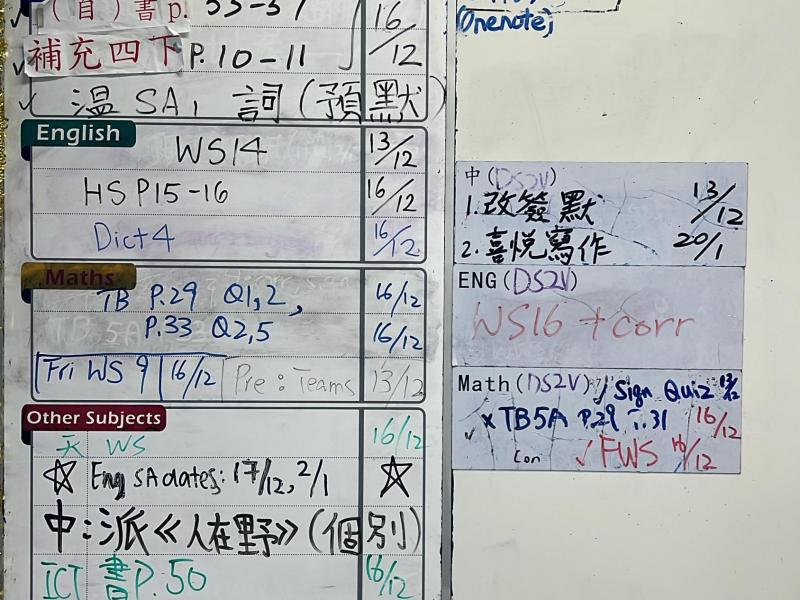 (自)書p. 33-37
補充四下 P.10-11 16/12
温 SA1 詞(預默)
English
WS14 13/12
HS P15-16 16/12
Dict 4 16/12
Maths
TB P.29 Q1,2, 16/12
P.33 Q2,5 16/12
Fri WS 9 16/12 Pre: Teams 13/12
Other Subjects
WS 16/12
Eng SA dates: 17/12, 2/1
中:派《人在野》(個別)
ICT 書P.50 16/12
(Onenote)
中(DS2V)
1.改簽默 13/12
2.喜悦寫作 20/1
ENG(DS2V)
WS16 + corr
Math(DS2V) / Sign Quiz 13/12
x TB5A P.29 T.31 16/12
Con ✓ FWS 16/12